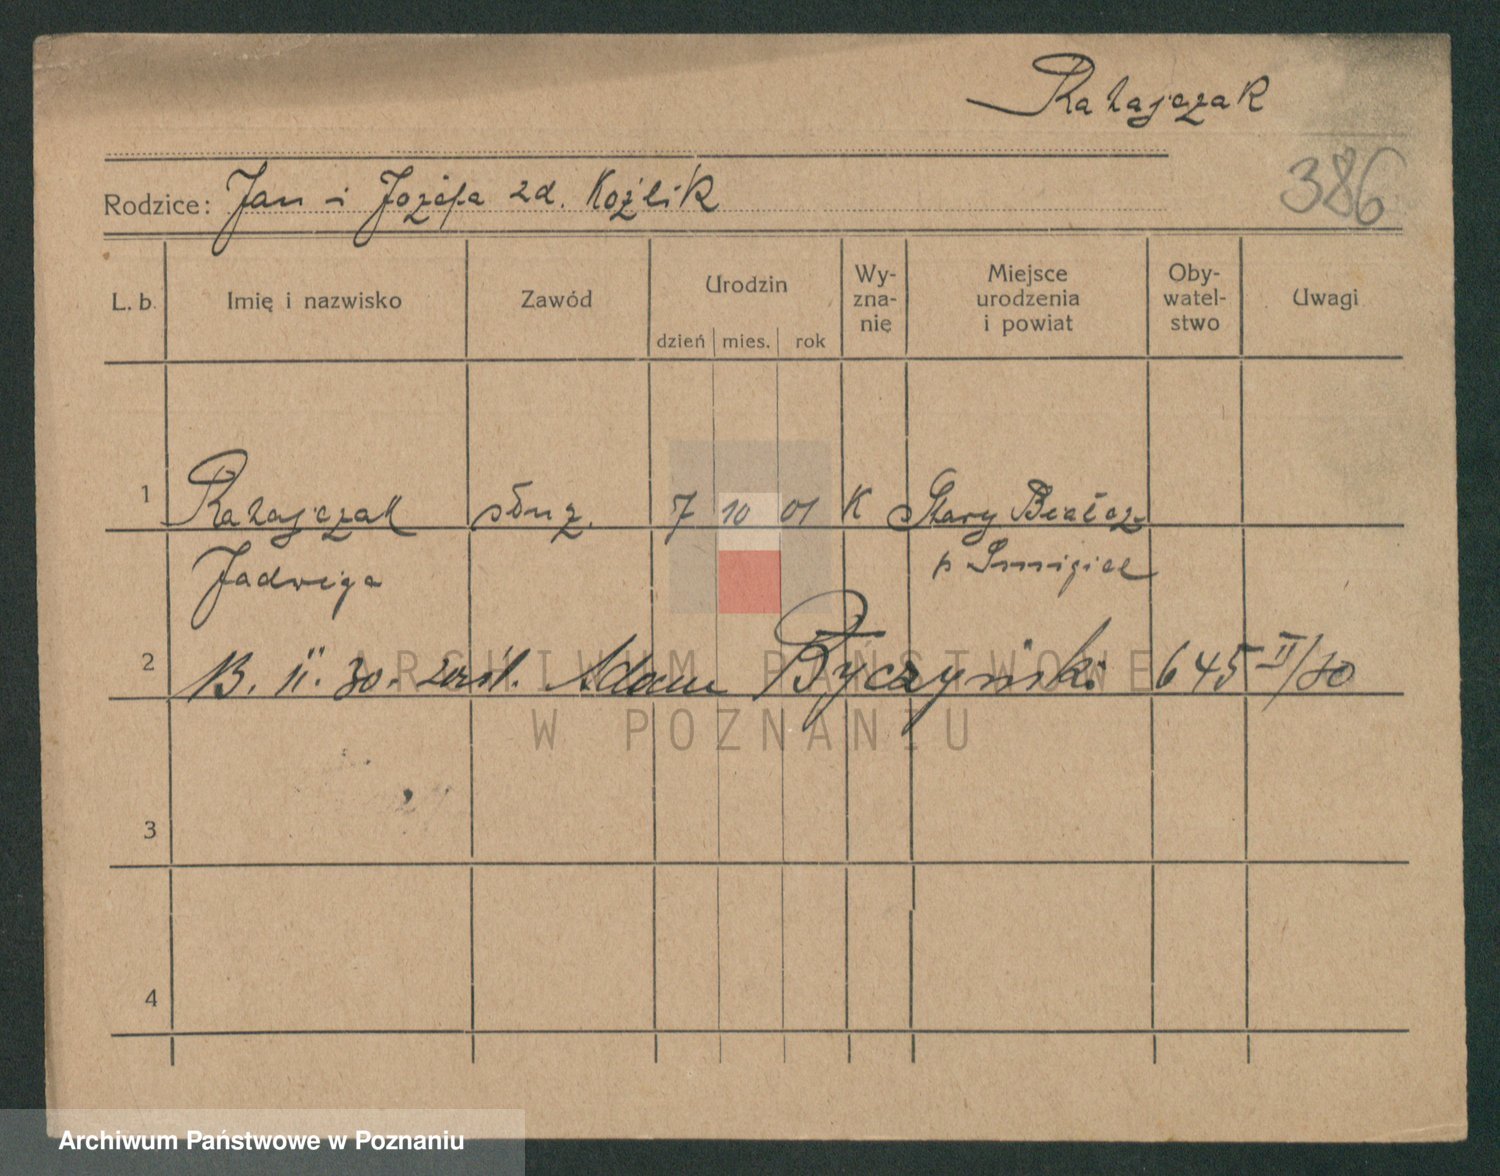 Ratajczak
386
Rodzice: Jan i Józefa zd. Koźlik
L. b. Imię i nazwisko Zawód Urodzin dzień mies. rok Wy-zna-nię Miejsce urodzenia i powiat Oby-watel-stwo Uwagi
1 Ratajczak służ. 7 10 01 K Stary Białcz
Jadwiga p Smigiel
2 13. II. 30. zaśl. Adam Byczyński 645 II/30
3
4
ARCHIWUM PAŃSTWOWE
W POZNANIU
Archiwum Państwowe w Poznaniu